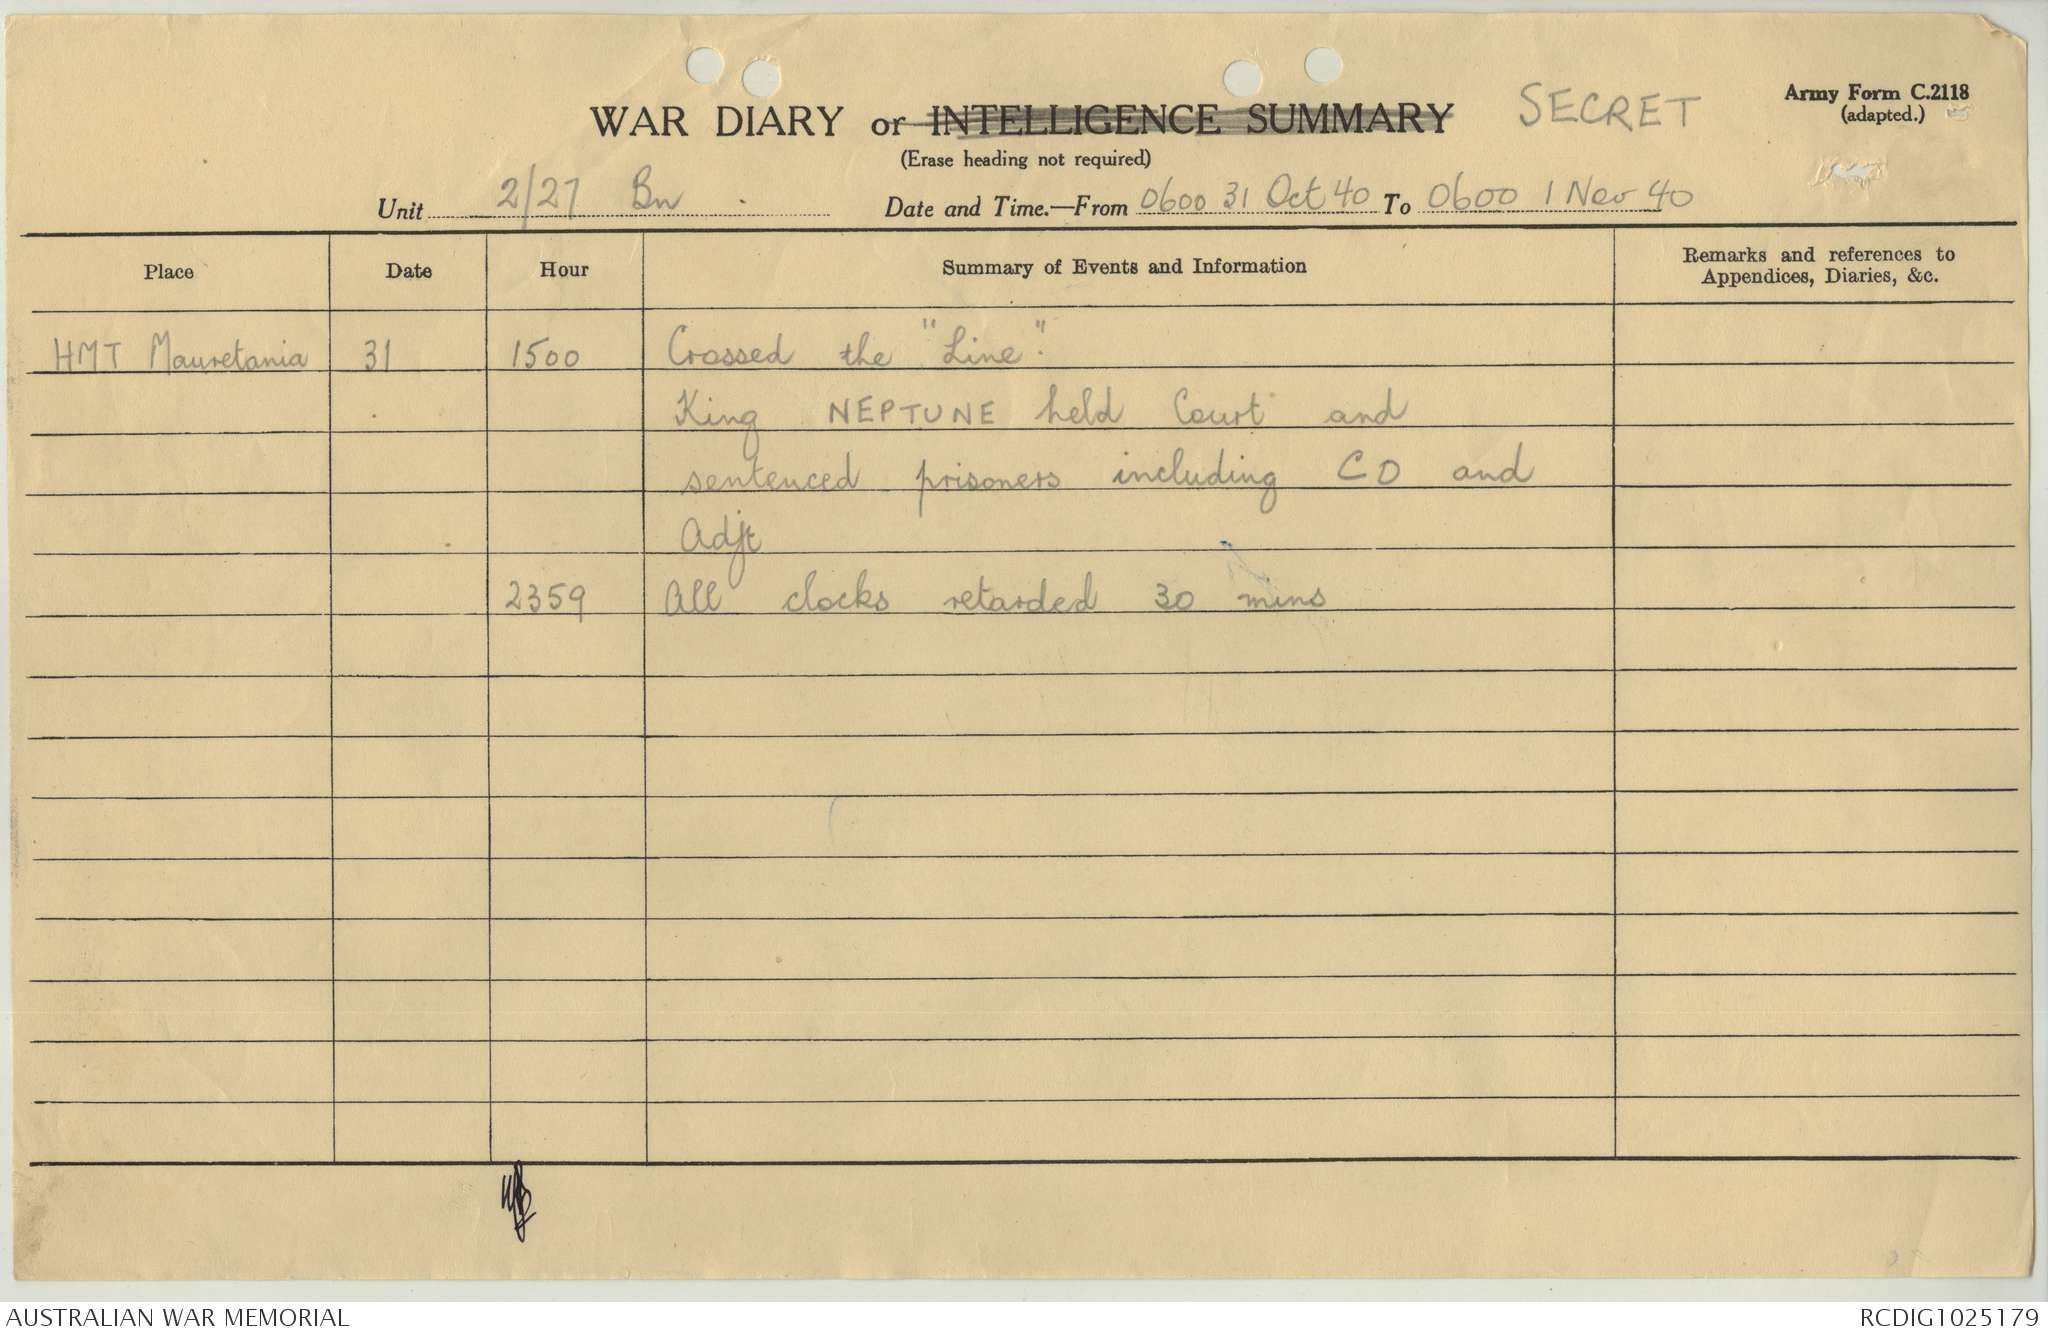 WAR DIARY or INTELLIGENCE SUMMARY
SECRET
Army Form C.2118
(adapted.)
(Erase heading not required)
Unit 2/27 Bn Date and Time.—From 0600 31 Oct 40 To 0600 1 Nov 40
Place Date Hour Summary of Events and Information Remarks and references to
Appendices, Diaries, &c.
HMT Mauretania 31 1500 Crossed the "Line".
King NEPTUNE held Court and
sentenced prisoners including CO and
Adjt
2359 All clocks retarded 30 mins
AUSTRALIAN WAR MEMORIAL RCDIG1025179